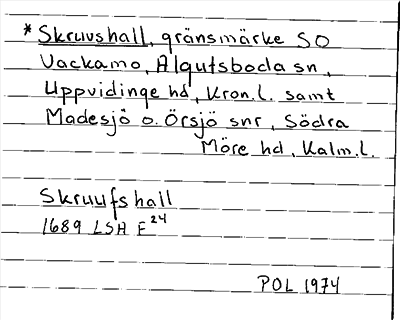 * Skruvshall, gränsmärke SO
Vackamo, Algutsboda sn,
Uppvidinge hd, Kron.l. samt
Madesjö o. Örsjö snr, Södra
Möre hd, Kalm.l.
Skruufshall
1689 LSA F24
POL 1974